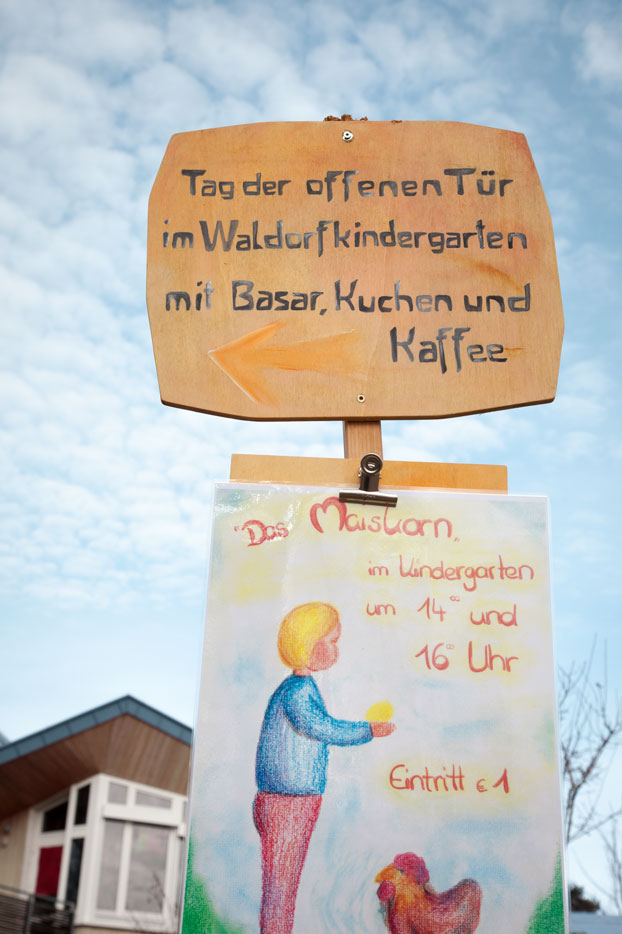 Tag der offenen Tür
im Waldorfkindergarten
mit Basar, Kuchen und
Kaffee
"Das Maiskorn"
im Kindergarten
um 14⁰⁰ und
16⁰⁰ Uhr
Eintritt € 1